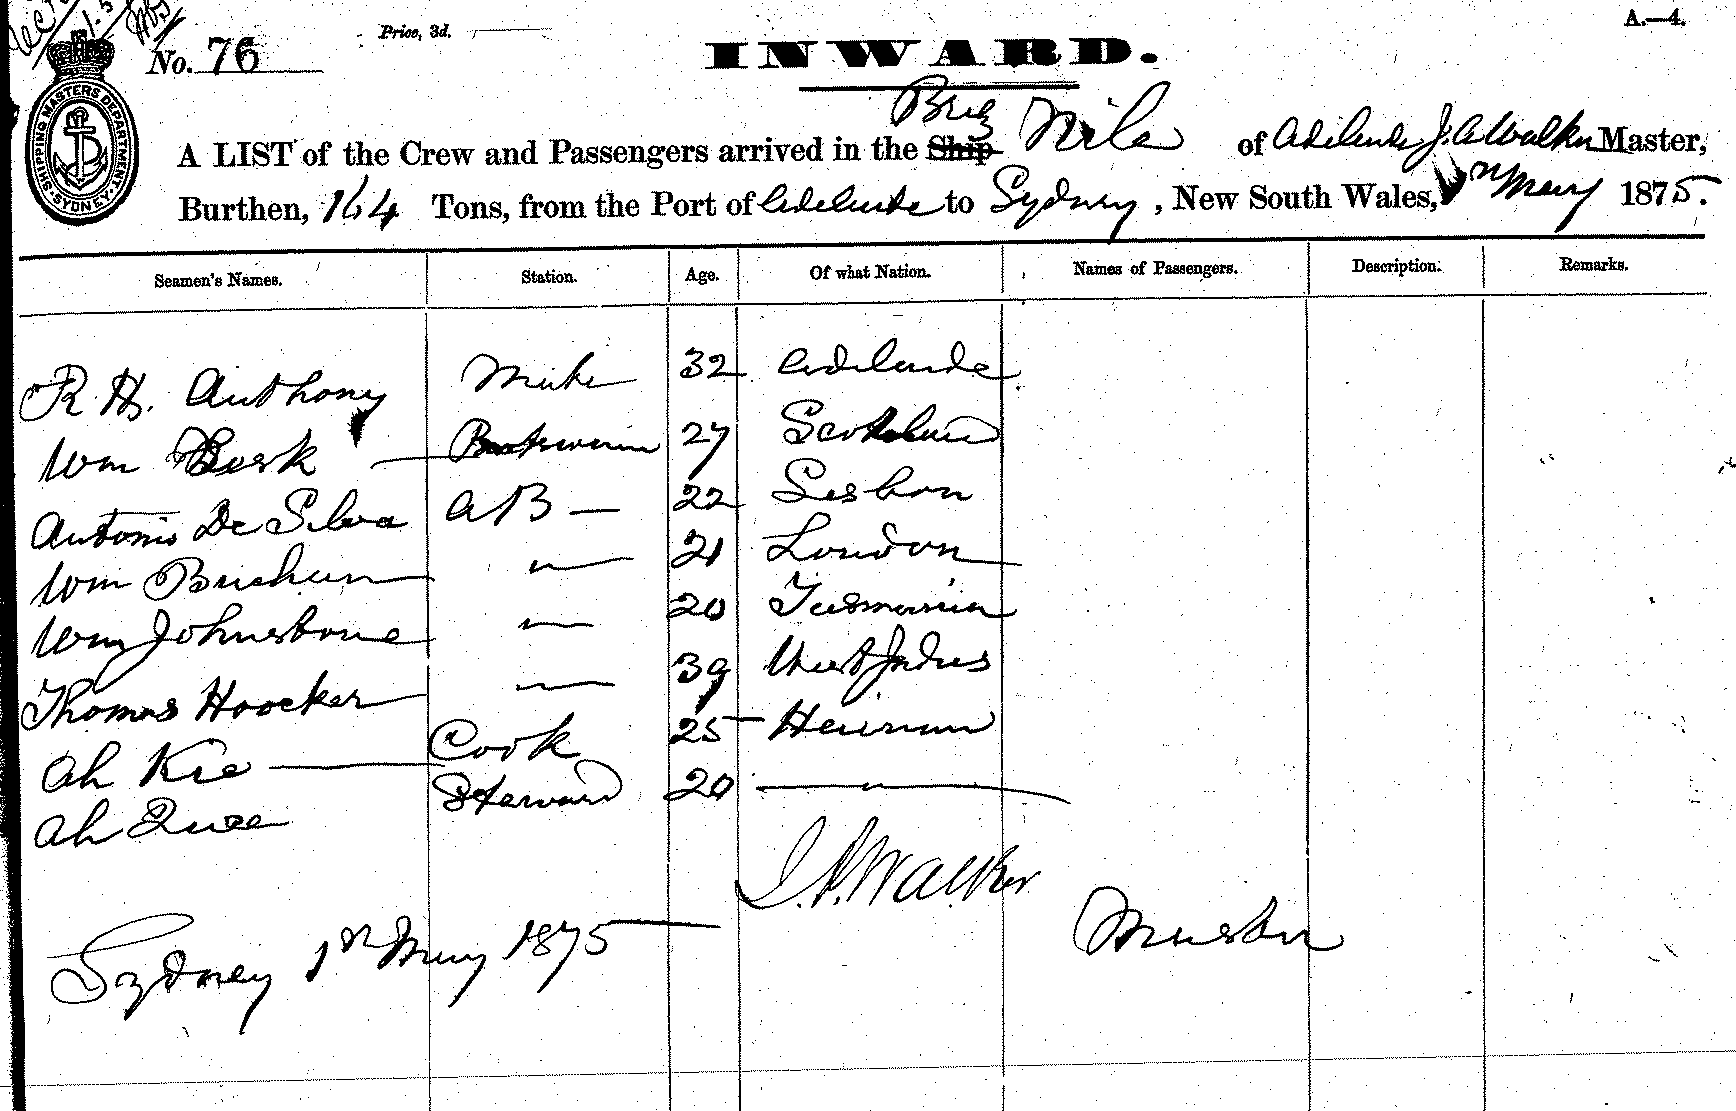 No. 76
Price, 3d.
A.—4.
INWARD.
SHIPPING MASTERS DEPARTMENT. SYDNEY.
A LIST of the Crew and Passengers arrived in the Ship Brig Nile of Adelaide J. A Walker Master,
Burthen, 164 Tons, from the Port of Adelaide to Sydney, New South Wales, May 1875.
Seamen's Names. Station. Age. Of what Nation. Names of Passengers. Description. Remarks.
R H. Anthony Mate 32 Adelaide
Wm Boatswain 27 Scotland
Antonio De Silva AB — 22 Lisbon
Wm " 21 London
Wm Johnstone " 20 Tasmania
Thomas Hoocker " 39 West Indies
Ah Kee Cook 25
Ah Quee Steward 20 "
J. A. Walker
Master
Sydney 1st May 1875